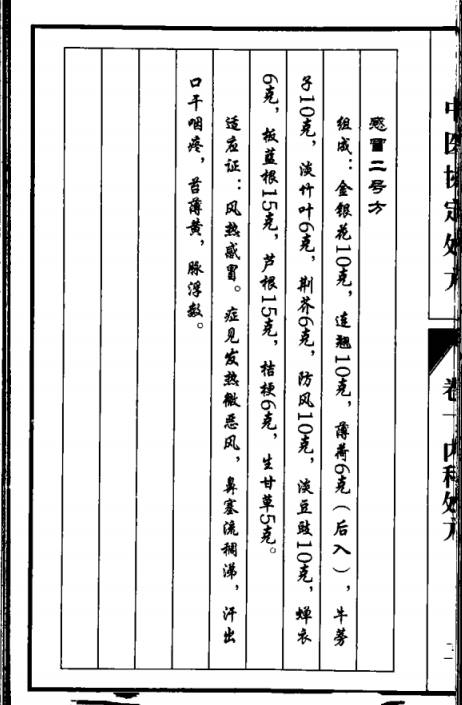 中医协定处方
卷一 内科处方
感冒二号方
组成：金银花10克，连翘10克，薄荷6克（后入），牛蒡
子10克，淡竹叶6克，荆芥6克，防风10克，淡豆豉10克，蝉衣
6克，板蓝根15克，芦根15克，桔梗6克，生甘草5克。
适应证：风热感冒。症见发热微恶风，鼻塞流稠涕，汗出
口干咽疼，苔薄黄，脉浮数。